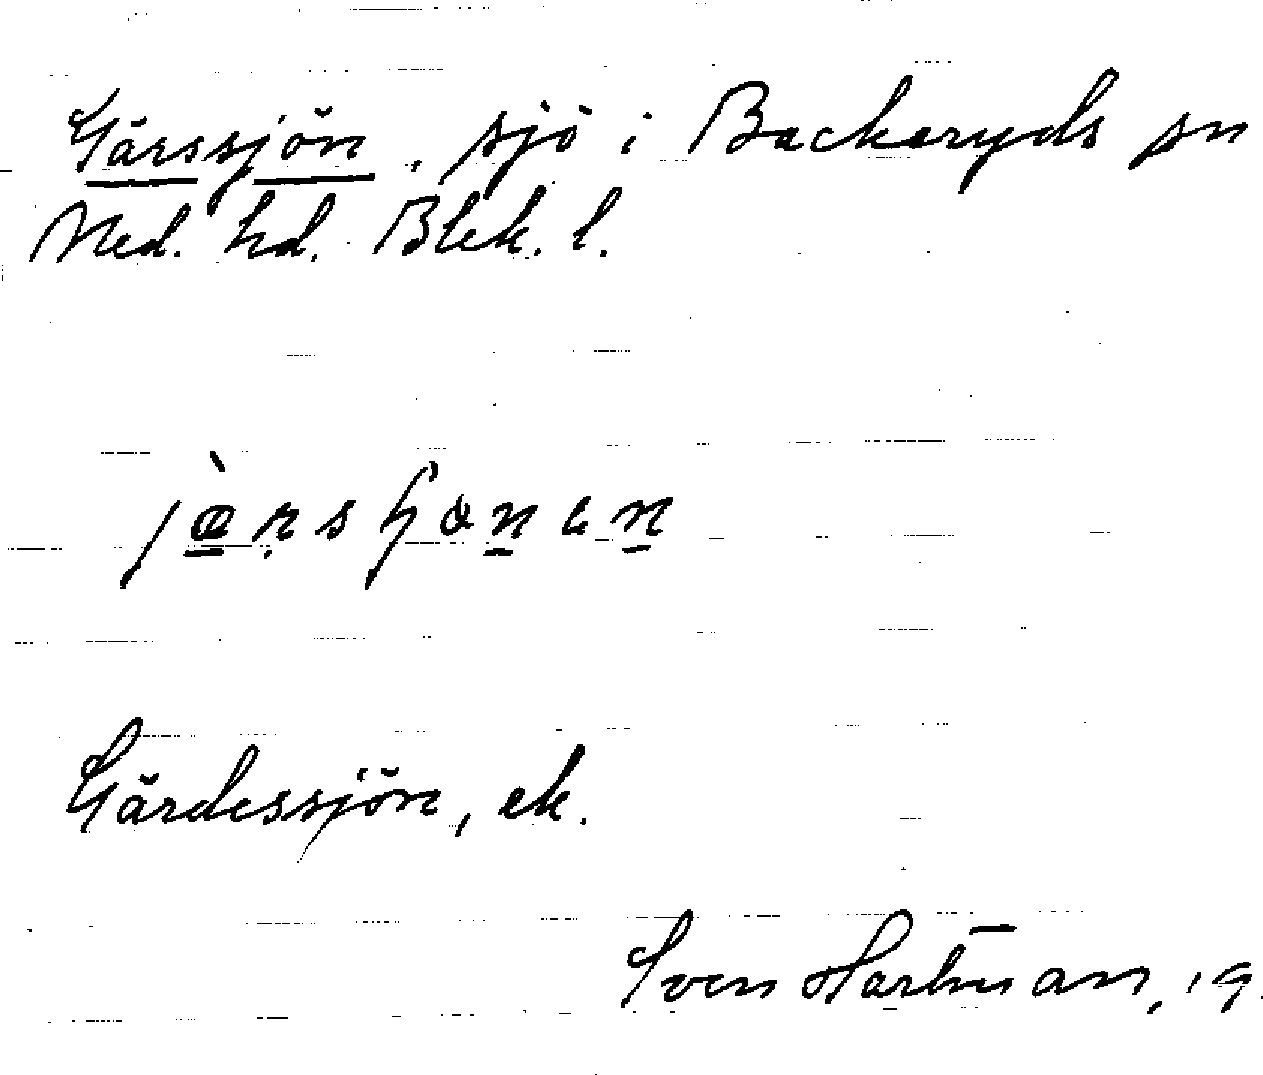 Gärssjön, sjö i Backaryds sn
Med. hd. Blek. l.
Gärdessjön, ek.
Sven Hartman, 19